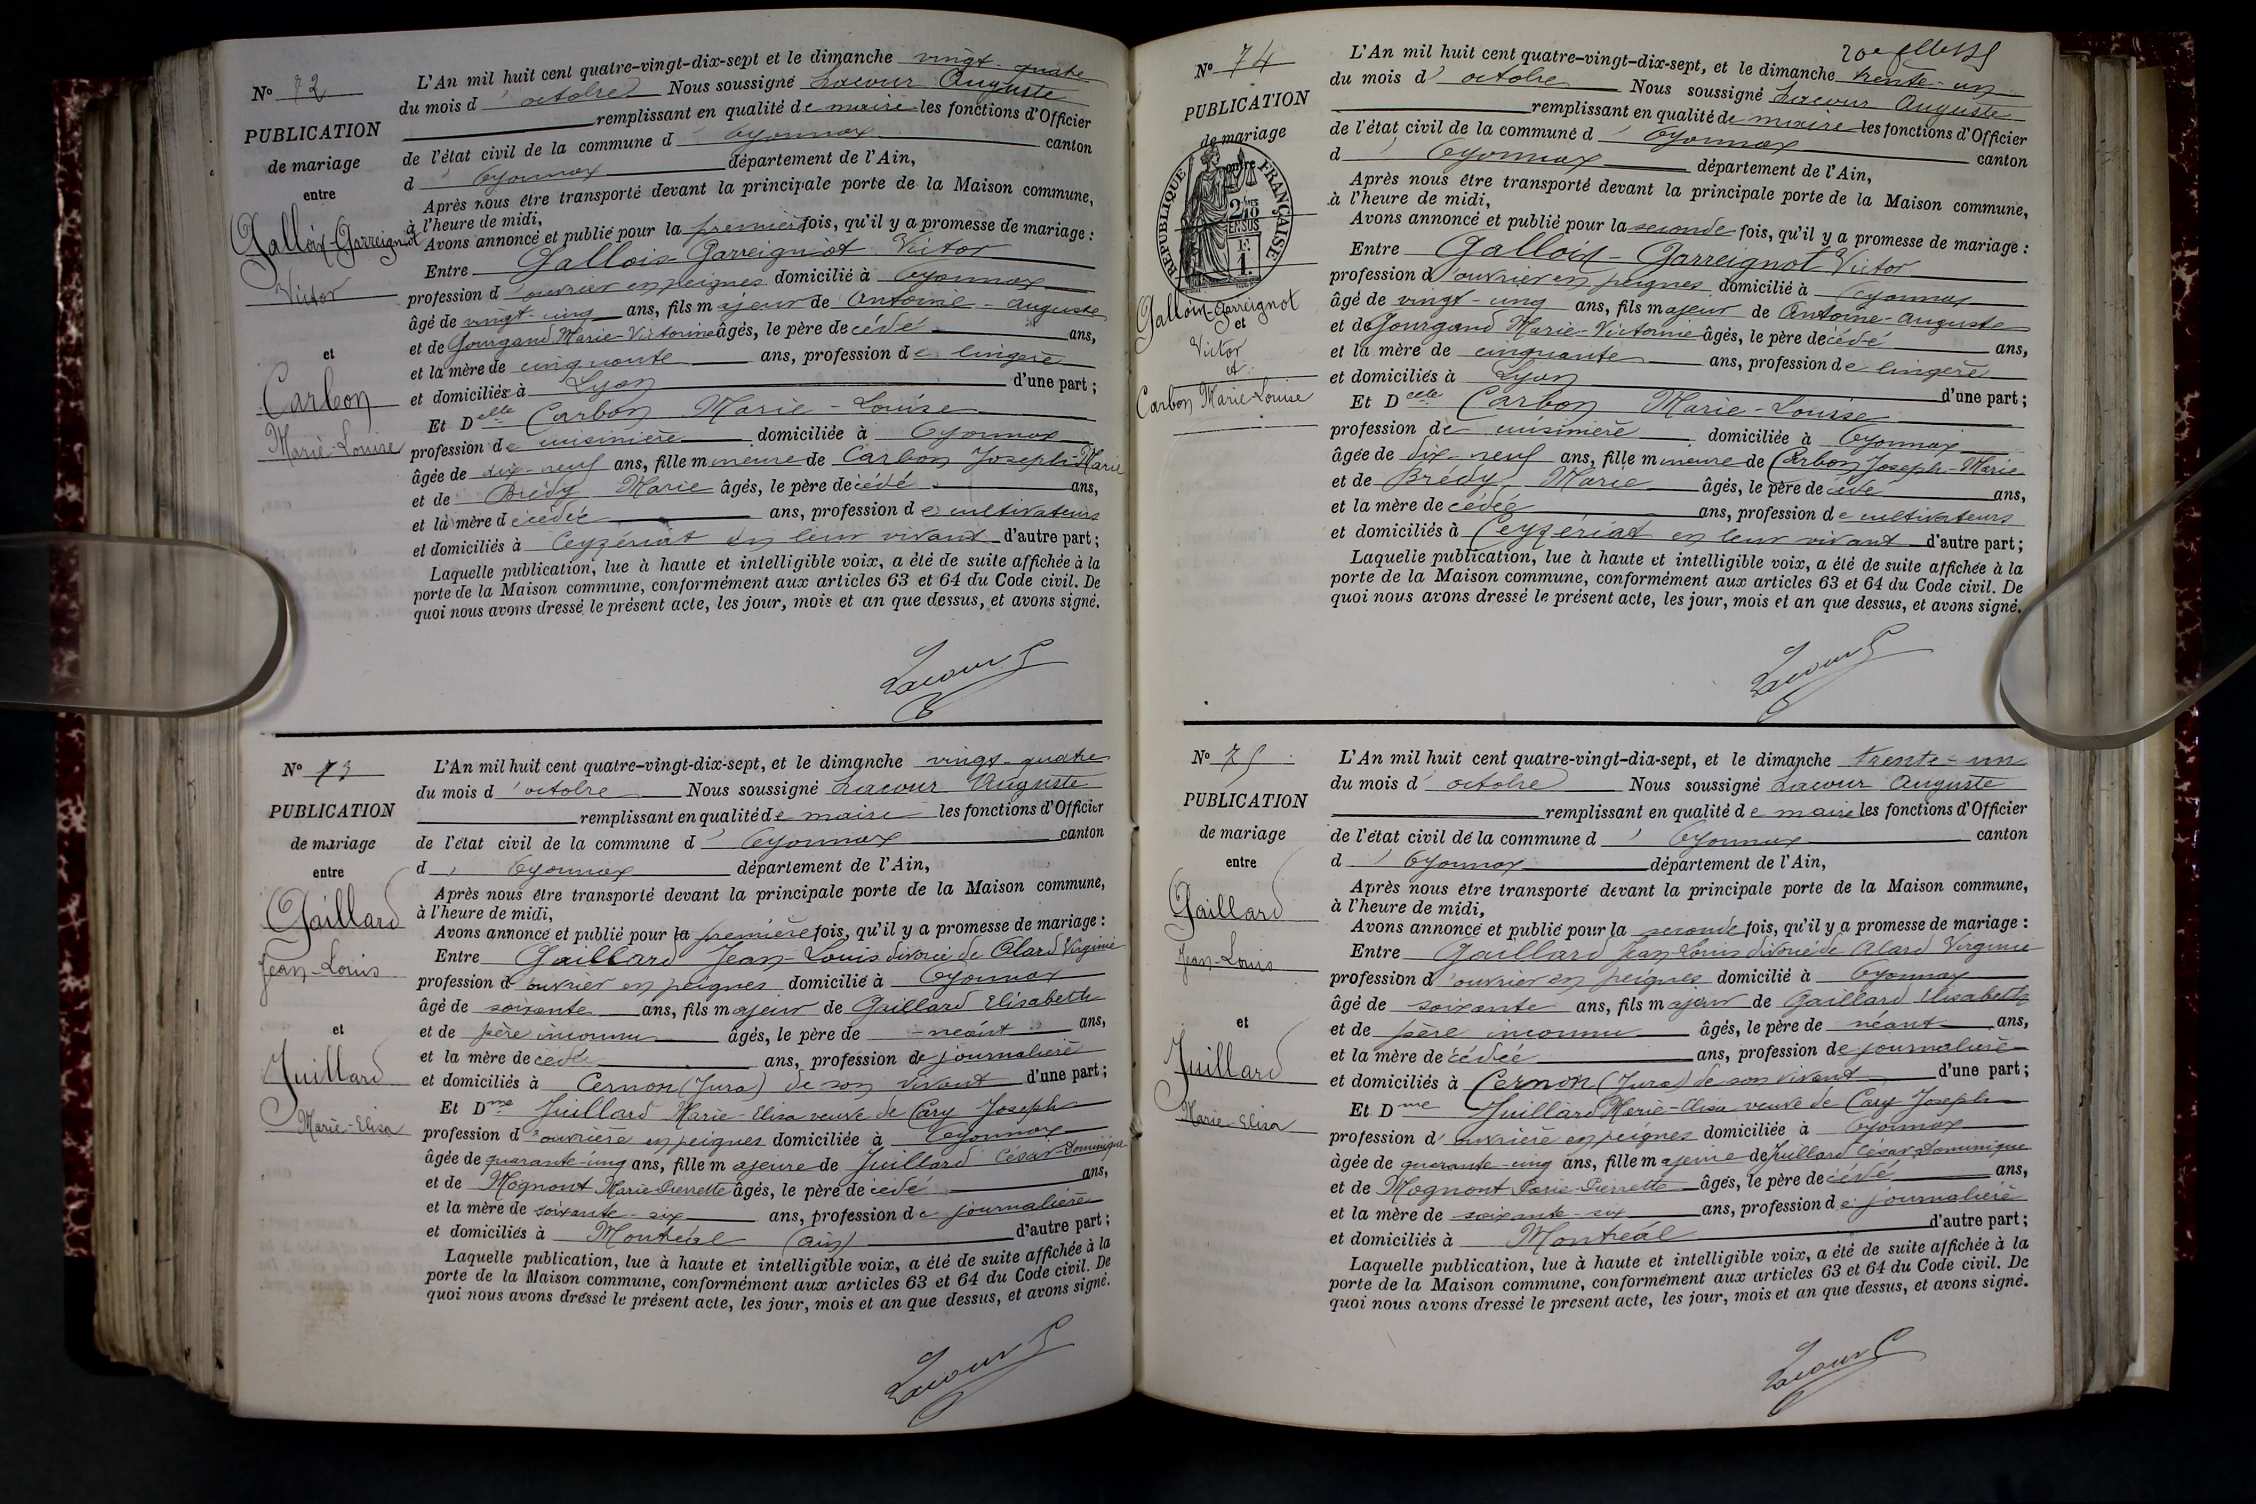 N° 72
PUBLICATION
de mariage
entre
Galloix-Garreignot
Victor
et
Carbon
Marie-Louise
L'An mil huit cent quatre-vingt-dix-sept et le dimanche vingt-quatre
du mois d'octobre Nous soussigné Lacour Auguste
remplissant en qualité de maire les fonctions d'Officier
de l'état civil de la commune d'Oyonnax canton
d'Oyonnax département de l'Ain,
Après nous être transporté devant la principale porte de la Maison commune,
à l'heure de midi,
Avons annoncé et publié pour la première fois, qu'il y a promesse de mariage :
Entre Gallois-Garreignot Victor
profession d'ouvrier en peignes domicilié à Oyonnax
âgé de vingt-cinq ans, fils majeur de Antoine-Auguste
et de Gourgand Marie-Victorine âgés, le père décédé ans,
et la mère de cinquante ans, profession de lingère
et domiciliés à Lyon d'une part ;
Et Delle Carbon Marie-Louise
profession de cuisinière domiciliée à Oyonnax
âgée de dix-neuf ans, fille mineure de Carbon Joseph-Marie
et de Brédy Marie âgés, le père décédé ans,
et la mère décédée ans, profession de cultivateurs
et domiciliés à Ceyzériat en leur vivant d'autre part ;
Laquelle publication, lue à haute et intelligible voix, a été de suite affichée à la
porte de la Maison commune, conformément aux articles 63 et 64 du Code civil. De
quoi nous avons dressé le présent acte, les jour, mois et an que dessus, et avons signé.
Lacour
N° 73
PUBLICATION
de mariage
entre
Gaillard
Jean-Louis
et
Juillard
Marie-Elisa
L'An mil huit cent quatre-vingt-dix-sept, et le dimanche vingt-quatre
du mois d'octobre Nous soussigné Lacour Auguste
remplissant en qualité de maire les fonctions d'Officier
de l'état civil de la commune d'Oyonnax canton
d'Oyonnax département de l'Ain,
Après nous être transporté devant la principale porte de la Maison commune,
à l'heure de midi,
Avons annoncé et publié pour la première fois, qu'il y a promesse de mariage :
Entre Gaillard Jean-Louis divorcé de Alard Virginie
profession d'ouvrier en peignes domicilié à Oyonnax
âgé de soixante ans, fils majeur de Gaillard Elisabeth
et de père inconnu âgés, le père de néant ans,
et la mère décédée ans, profession de journalière
et domiciliés à Cernon (Jura) de son vivant d'une part ;
Et Dme Juillard Marie-Elisa veuve de Cary Joseph
profession d'ouvrière en peignes domiciliée à Oyonnax
âgée de quarante-cinq ans, fille majeure de Juillard César-Dominique
et de Mognont Marie-Pierrette âgés, le père décédé ans,
et la mère de soixante-six ans, profession de journalière
et domiciliés à Montréal (Ain) d'autre part ;
Laquelle publication, lue à haute et intelligible voix, a été de suite affichée à la
porte de la Maison commune, conformément aux articles 63 et 64 du Code civil. De
quoi nous avons dressé le présent acte, les jour, mois et an que dessus, et avons signé.
Lacour
N° 74
PUBLICATION
de mariage
entre
RÉPUBLIQUE FRANÇAISE
Galloix-Garreignot
et
Victor
et
Carbon Marie-Louise
L'An mil huit cent quatre-vingt-dix-sept, et le dimanche trente-un
du mois d'octobre Nous soussigné Lacour Auguste
remplissant en qualité de maire les fonctions d'Officier
de l'état civil de la commune d'Oyonnax canton
d'Oyonnax département de l'Ain,
Après nous être transporté devant la principale porte de la Maison commune,
à l'heure de midi,
Avons annoncé et publié pour la seconde fois, qu'il y a promesse de mariage :
Entre Gallois-Garreignot Victor
profession d'ouvrier en peignes domicilié à Oyonnax
âgé de vingt-cinq ans, fils majeur de Antoine-Auguste
et de Gourgand Marie-Victorine âgés, le père décédé ans,
et la mère de cinquante ans, profession de lingère
et domiciliés à Lyon d'une part ;
Et Delle Carbon Marie-Louise
profession de cuisinière domiciliée à Oyonnax
âgée de dix-neuf ans, fille mineure de Carbon Joseph-Marie
et de Brédy Marie âgés, le père décédé ans,
et la mère décédée ans, profession de cultivateurs
et domiciliés à Ceyzériat en leur vivant d'autre part ;
Laquelle publication, lue à haute et intelligible voix, a été de suite affichée à la
porte de la Maison commune, conformément aux articles 63 et 64 du Code civil. De
quoi nous avons dressé le présent acte, les jour, mois et an que dessus, et avons signé.
Lacour
N° 75
PUBLICATION
de mariage
entre
Gaillard
Jean-Louis
et
Juillard
Marie-Elisa
L'An mil huit cent quatre-vingt-dix-sept, et le dimanche trente-un
du mois d'octobre Nous soussigné Lacour Auguste
remplissant en qualité de maire les fonctions d'Officier
de l'état civil de la commune d'Oyonnax canton
d'Oyonnax département de l'Ain,
Après nous être transporté devant la principale porte de la Maison commune,
à l'heure de midi,
Avons annoncé et publié pour la seconde fois, qu'il y a promesse de mariage :
Entre Gaillard Jean-Louis divorcé de Alard Virginie
profession d'ouvrier en peignes domicilié à Oyonnax
âgé de soixante ans, fils majeur de Gaillard Elisabeth
et de père inconnu âgés, le père de néant ans,
et la mère décédée ans, profession de journalière
et domiciliés à Cernon (Jura) de son vivant d'une part ;
Et Dme Juillard Marie-Elisa veuve de Cary Joseph
profession d'ouvrière en peignes domiciliée à Oyonnax
âgée de quarante-cinq ans, fille majeure de Juillard César Dominique
et de Mognont Marie-Pierrette âgés, le père décédé ans,
et la mère de soixante-six ans, profession de journalière
et domiciliés à Montréal d'autre part ;
Laquelle publication, lue à haute et intelligible voix, a été de suite affichée à la
porte de la Maison commune, conformément aux articles 63 et 64 du Code civil. De
quoi nous avons dressé le présent acte, les jour, mois et an que dessus, et avons signé.
Lacour